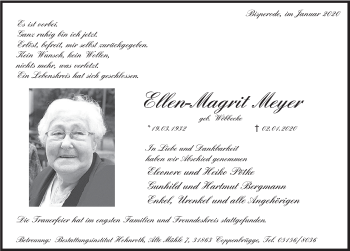 Bisperode, im Januar 2020
Es ist vorbei,
Ganz ruhig bin ich jetzt,
Erlöst, befreit, mir selbst zurückgegeben.
Kein Wunsch, kein Wollen,
nichts mehr, was verletzt.
Ein Lebenskreis hat sich geschlossen.
Ellen-Magrit Meyer
geb. Wöbbecke
* 19.03.1932 † 02.01.2020
In Liebe und Dankbarkeit
haben wir Abschied genommen
Eleonore und Heiko Pötke
Gunhild und Hartmut Bergmann
Enkel, Urenkel und alle Angehörigen
Die Trauerfeier hat im engsten Familien und Freundeskreis stattgefunden.
Betreuung: Bestattungsinstitut Hohnroth, Alte Mühle 7, 31863 Coppenbrügge, 05156/8056